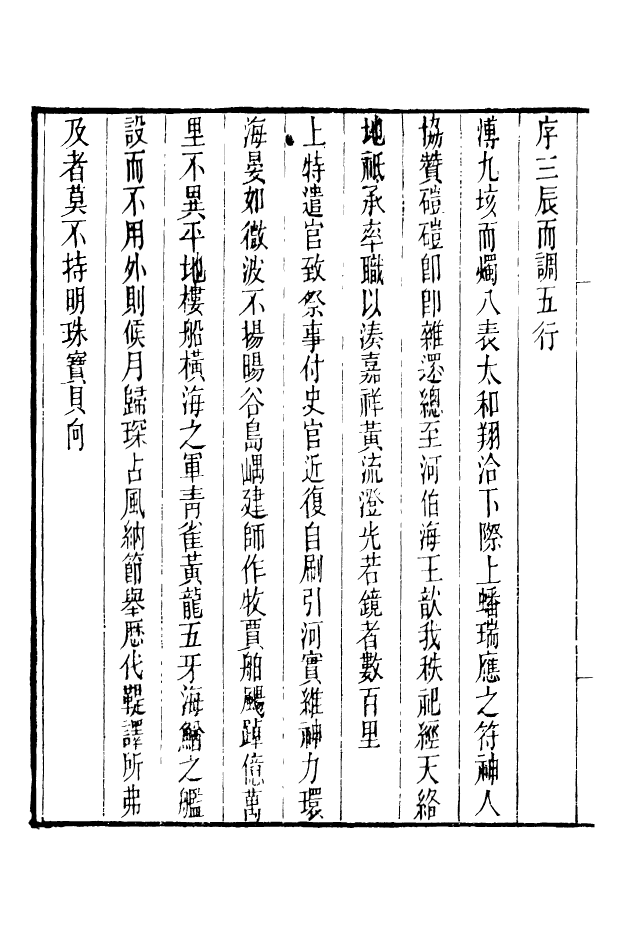 序三辰而調五行
溥九垓而燭八表太和翔洽下際上蟠瑞應之符神人
協贊磑磑卽卽雜還總至河伯海王歆我秩祀經天絡
地祗承率職以湊嘉祥黃流澄光若鏡者數百里
上特遣官致祭事付史官近復自刷引河實維神力環
海晏如微波不揚暘谷島嵎建師作牧賈舶颺踔億萬
里不異平地樓船橫海之軍靑雀黃龍五牙海鰌之艦
設而不用外則候月歸琛占風納節舉歷代鞮譯所弗
及者莫不持明珠寶貝向